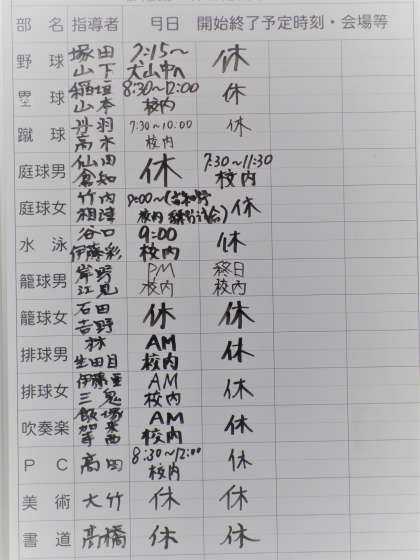 部 名 指導者 月日 開始終了予定時刻・会場等
野 球 塚田 7:15〜 休
山下 犬山中へ
塁 球 稲垣 8:30〜12:00 休
山本 校内
蹴 球 丹羽 7:30〜10:00 休
高木 校内
庭球男 仙田 休 7:30〜11:30
倉知 校内
庭球女 竹内 休
相澤 校内
水 泳 谷口 9:00 休
伊藤彩 校内
籠球男 岸野 PM 終日
江見 校内 校内
籠球女 石田 休 休
吉野
排球男 林 AM 休
生田目 校内
排球女 伊藤亜 AM 休
三鬼 校内
吹奏楽 飯塚 AM 休
校内
ＰＣ 高田 8:30〜12:00 休
校内
美 術 大竹 休 休
書 道 髙橋 休 休